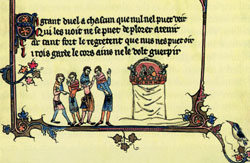 grant duel a chascun que nul nel puet veir
Qui les voit ne se puet de plorer atenir
Tant fort le regretent que nus nes puet oir
rois garde le cors ains ne le volt guerpir